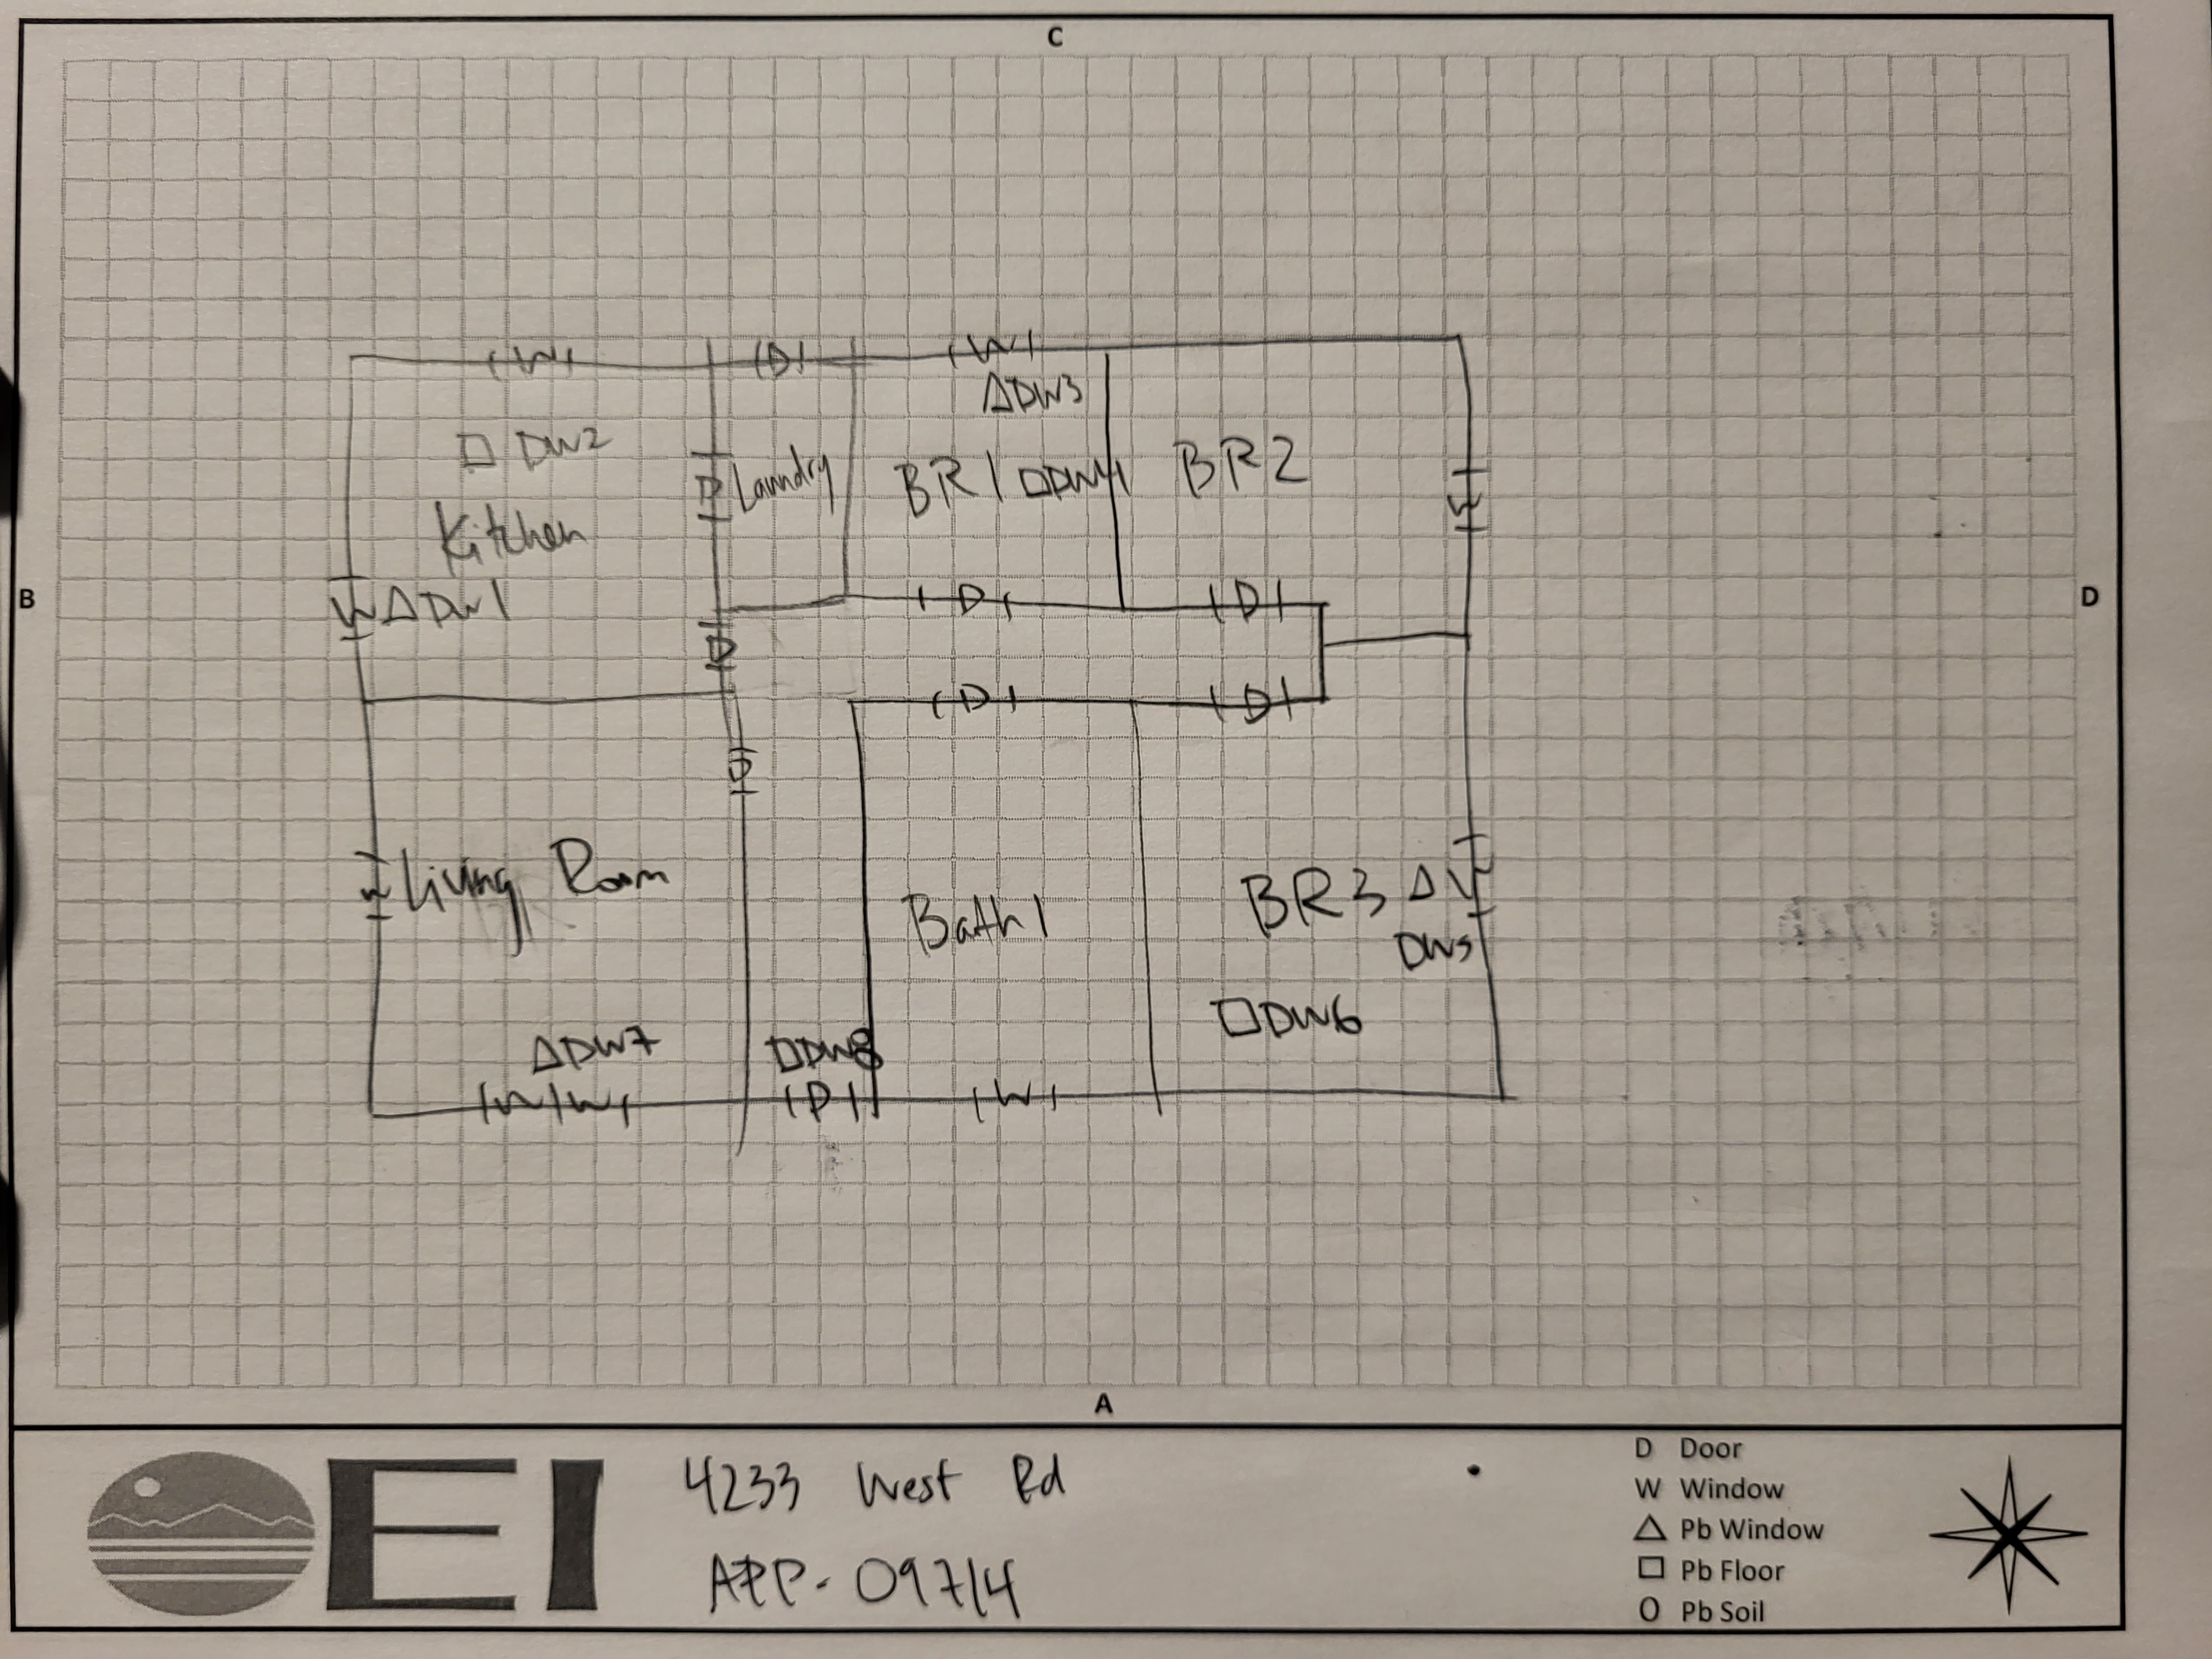 C
W D W
△DW3
□ DW2
D Laundry BR1 □DW4 BR2 W
Kitchen
B D
W △DW1 D D
D
D D
D
W Living Room Bath1 BR3 △ W
DW5
□DW6
△DW7 □DW8
W W D W
A
EI
4233 West Rd
APP-09714
D Door
W Window
△ Pb Window
□ Pb Floor
O Pb Soil